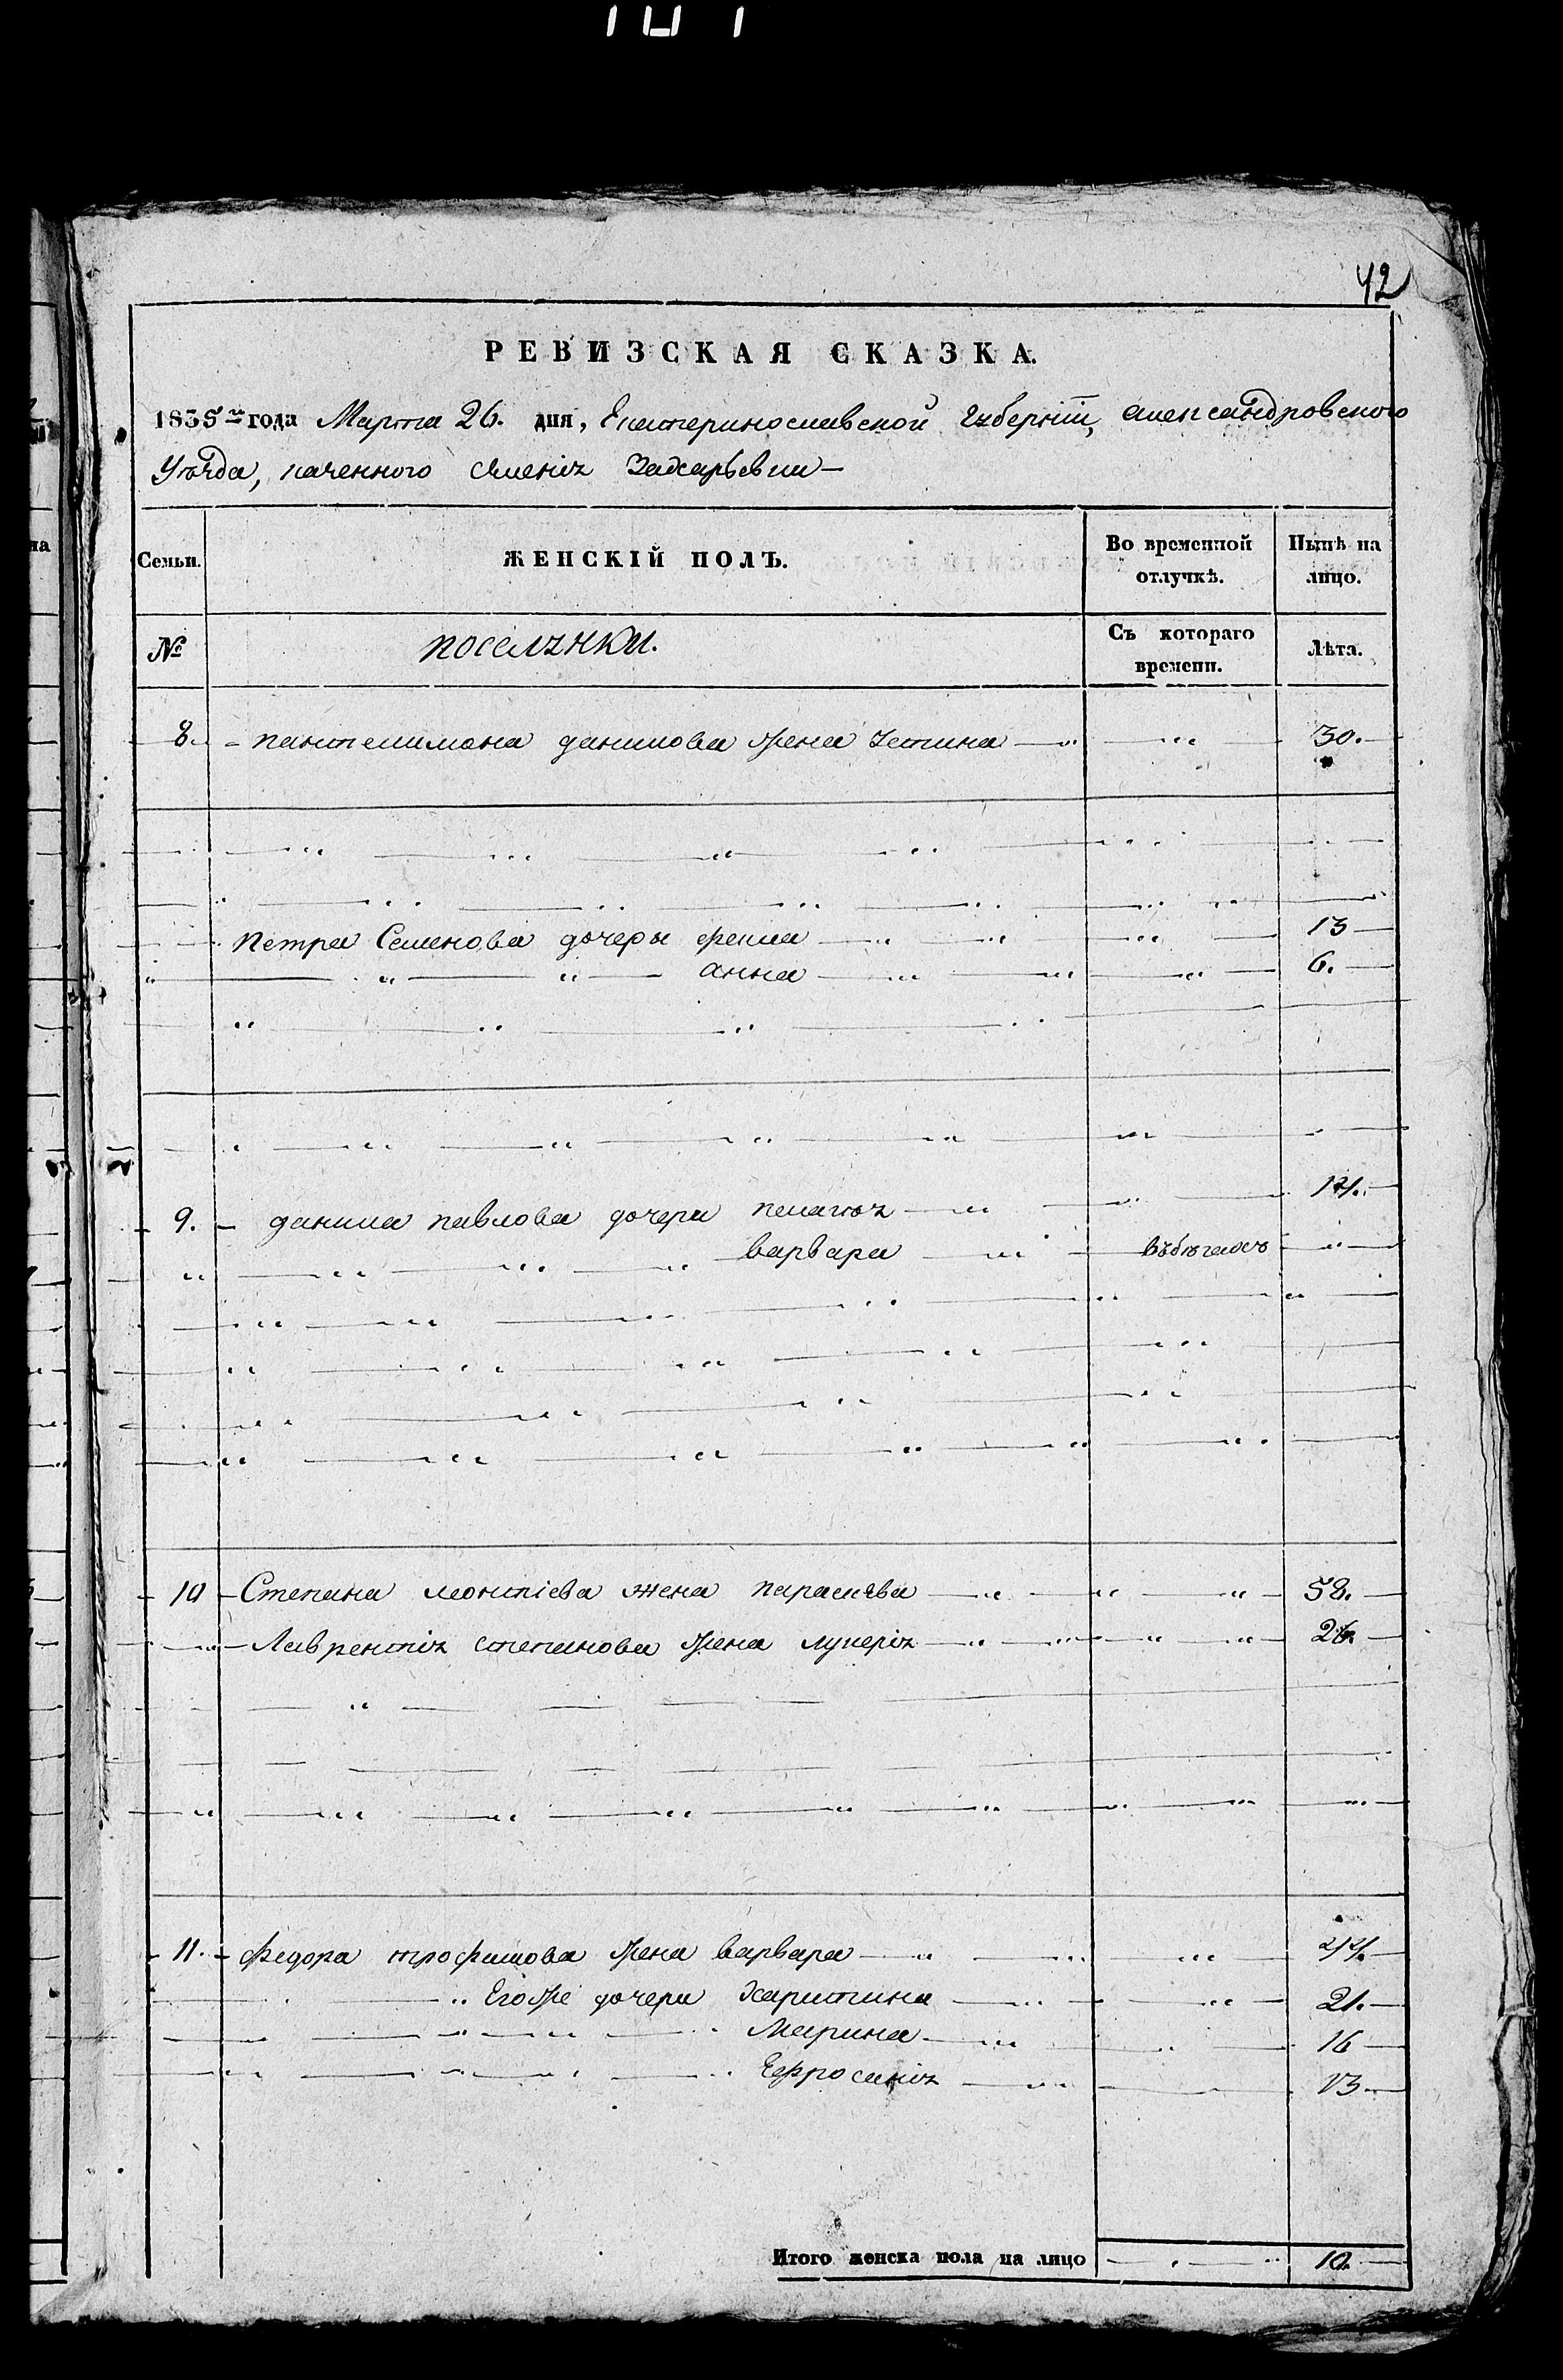 42
РЕВИЗСКАЯ СКАЗКА.
1835го года Марта 26. дня, Екатеринославской Губерніи, александровского
Уѣзда, каченного Именія Захарьевки —
Семьи. ЖЕНСКІЙ ПОЛЪ. Во временной отлучкѣ. Нынѣ на лицо.
№ поселянки. Съ котораго времени. Лѣта.
8. Пантелимона данилова жена Устина 30.
Петра Семенова дочеры фекла 13
анна 6.
9. данила павлова дочери пелагея 14.
варвара въбѣгахъ
10 Степана леонтіева жена парасковя 58.
Лаврентія степанова жена лукерія 26.
11. федора трофимова жена варвара 44.
Егоже дочери Харитина 21.
Марина 16
Ефросинія 13
Итого женска пола на лицо 10.